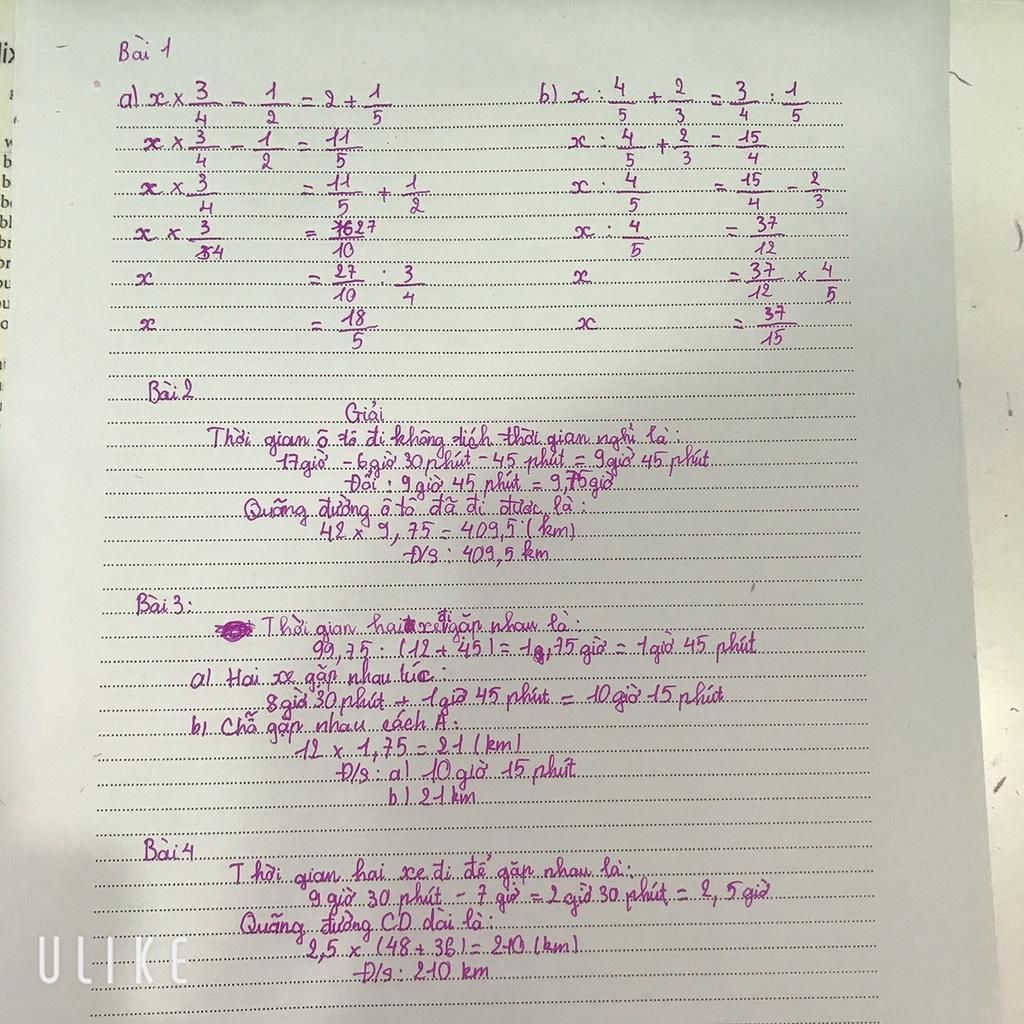 Bài 1
a) x × 3/4 - 1/2 = 2 + 1/5
b) x : 4/5 + 2/3 = 3/4 : 1/5
x × 3/4 - 1/2 = 11/5
x : 4/5 + 2/3 = 15/4
x × 3/4 = 11/5 + 1/2
x : 4/5 = 15/4 - 2/3
x × 3/4 = 27/10
x : 4/5 = 37/12
x = 27/10 : 3/4
x = 37/12 × 4/5
x = 18/5
x = 37/15
Bài 2
Giải
Thời gian ô tô đi không tích thời gian nghỉ là:
17 giờ - 6 giờ 30 phút - 45 phút = 9 giờ 45 phút
Đổi: 9 giờ 45 phút = 9,75 giờ
Quãng đường ô tô đã đi được là:
42 × 9,75 = 409,5 (km)
Đ/s: 409,5 km
Bài 3:
Thời gian hai xe đi gặp nhau là:
99,75 : (12 + 45) = 1,75 giờ = 1 giờ 45 phút
a) Hai xe gặp nhau lúc:
8 giờ 30 phút + 1 giờ 45 phút = 10 giờ 15 phút
b) Chỗ gặp nhau cách A:
12 × 1,75 = 21 (km)
Đ/s: a) 10 giờ 15 phút
b) 21 km
Bài 4
Thời gian hai xe đi để gặp nhau là:
9 giờ 30 phút - 7 giờ = 2 giờ 30 phút = 2,5 giờ
Quãng đường CD dài là:
2,5 × (48 + 36) = 210 (km)
Đ/s: 210 km
ULIKE